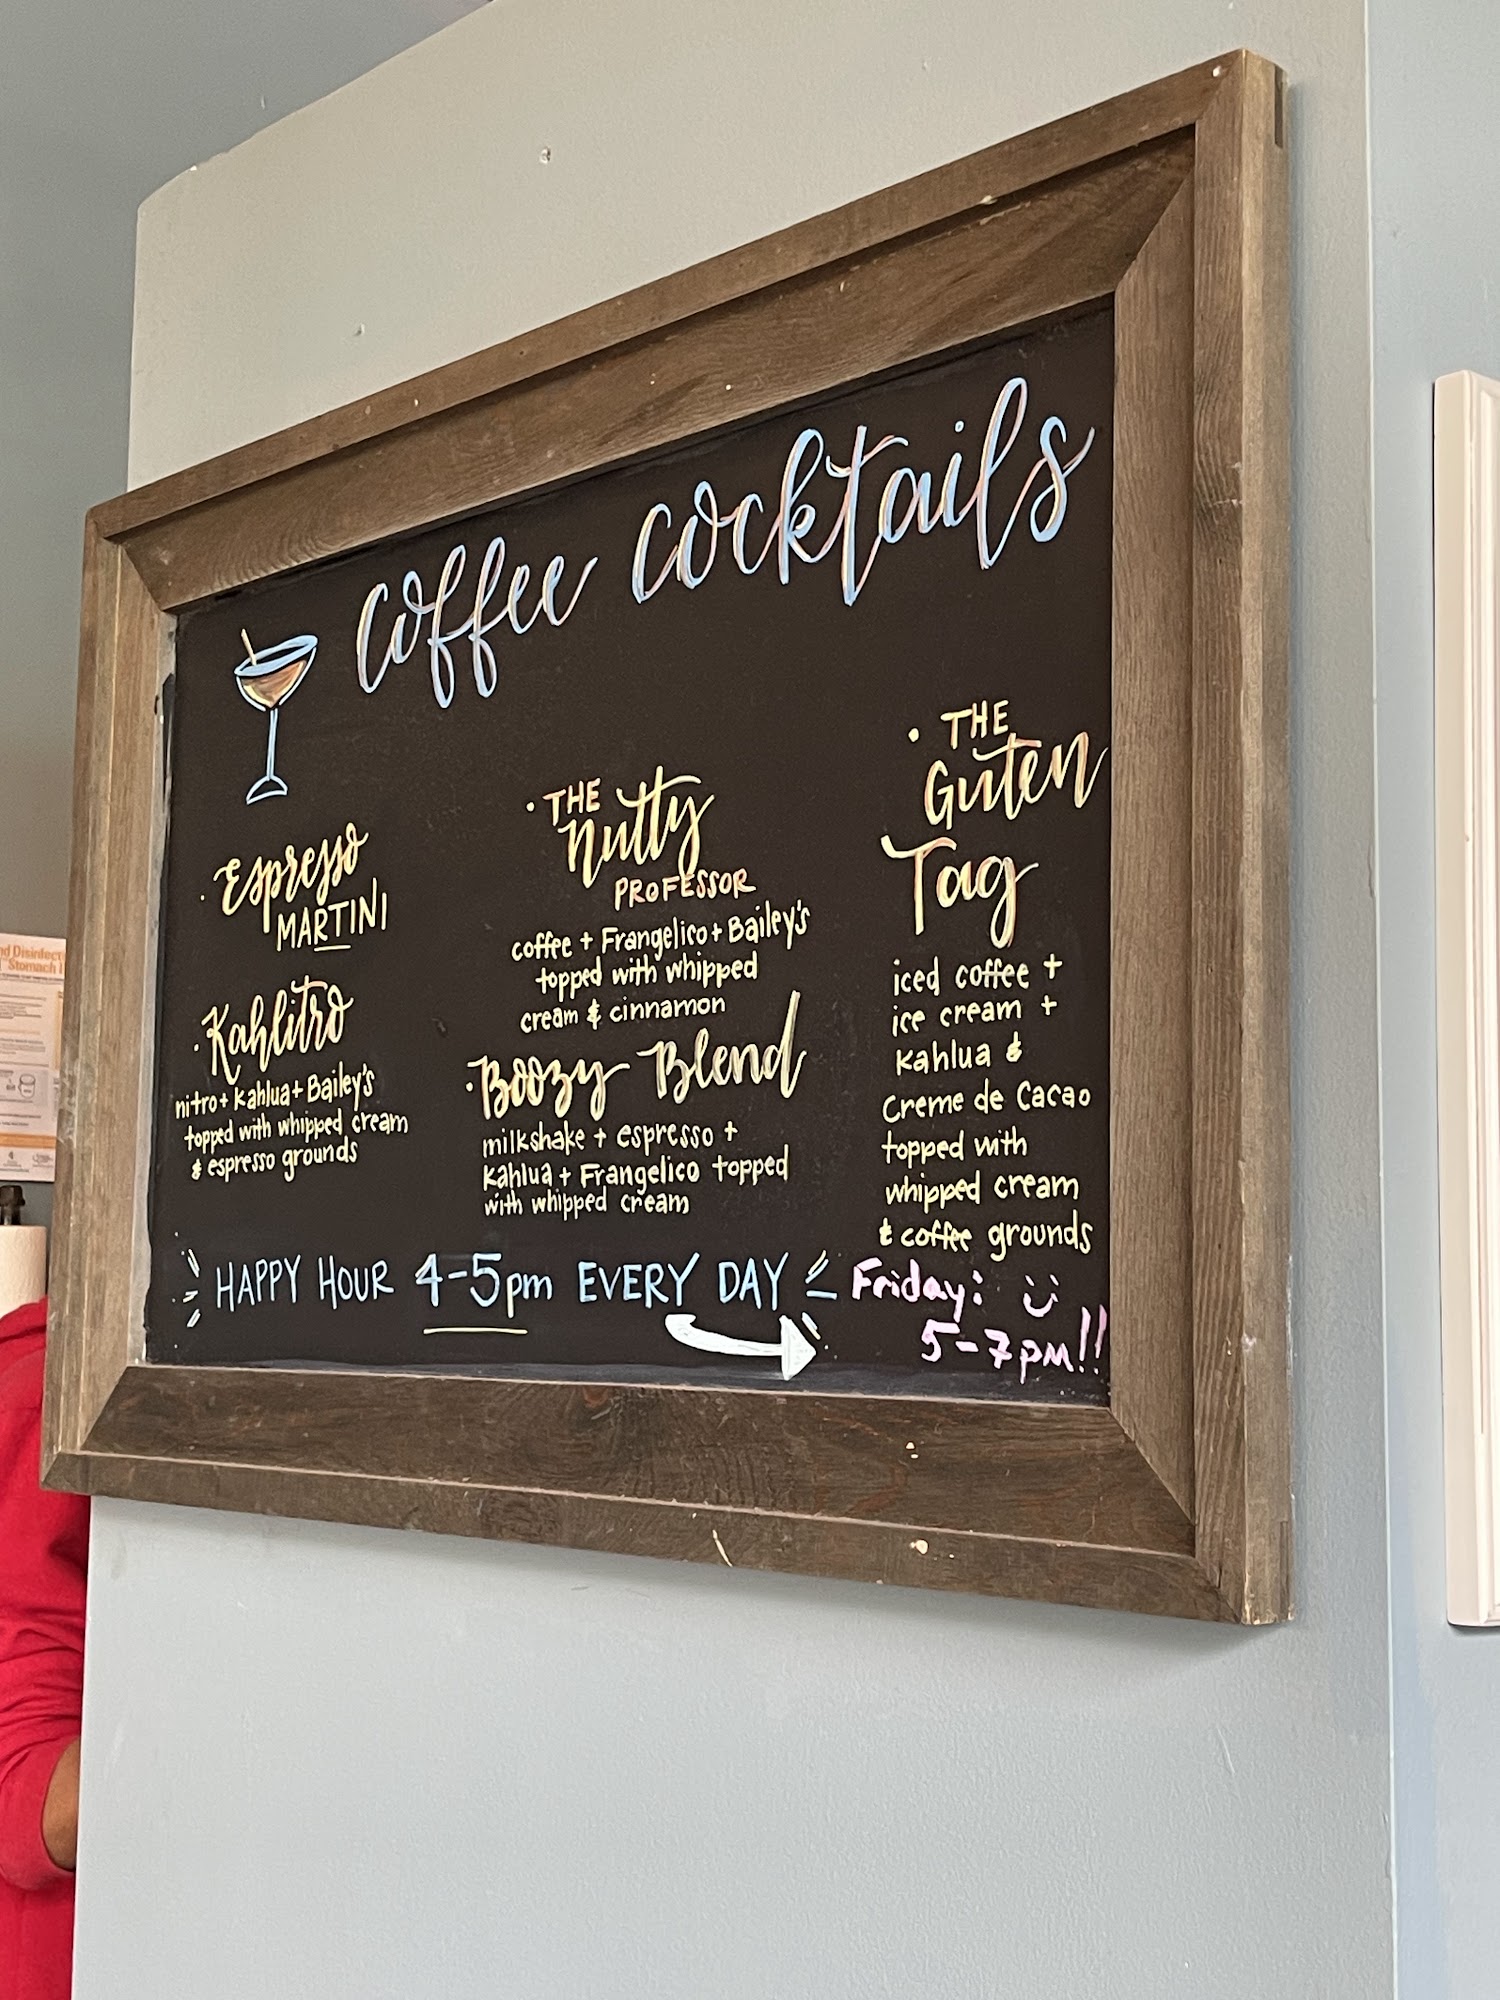 coffee cocktails
· Espresso
MARTINI
· Kahlitro
nitro + Kahlua + Bailey's
topped with whipped cream
& espresso grounds
· THE
Nutty
PROFESSOR
coffee + Frangelico + Bailey's
topped with whipped
cream & cinnamon
· Boozy Blend
milkshake + espresso +
Kahlua + Frangelico topped
with whipped cream
· THE
Guten
Tag
iced coffee +
ice cream +
Kahlua &
Creme de Cacao
topped with
whipped cream
& coffee grounds
HAPPY HOUR 4-5pm EVERY DAY
Friday:
5-7pm!!
nd Disinfect
Stomach